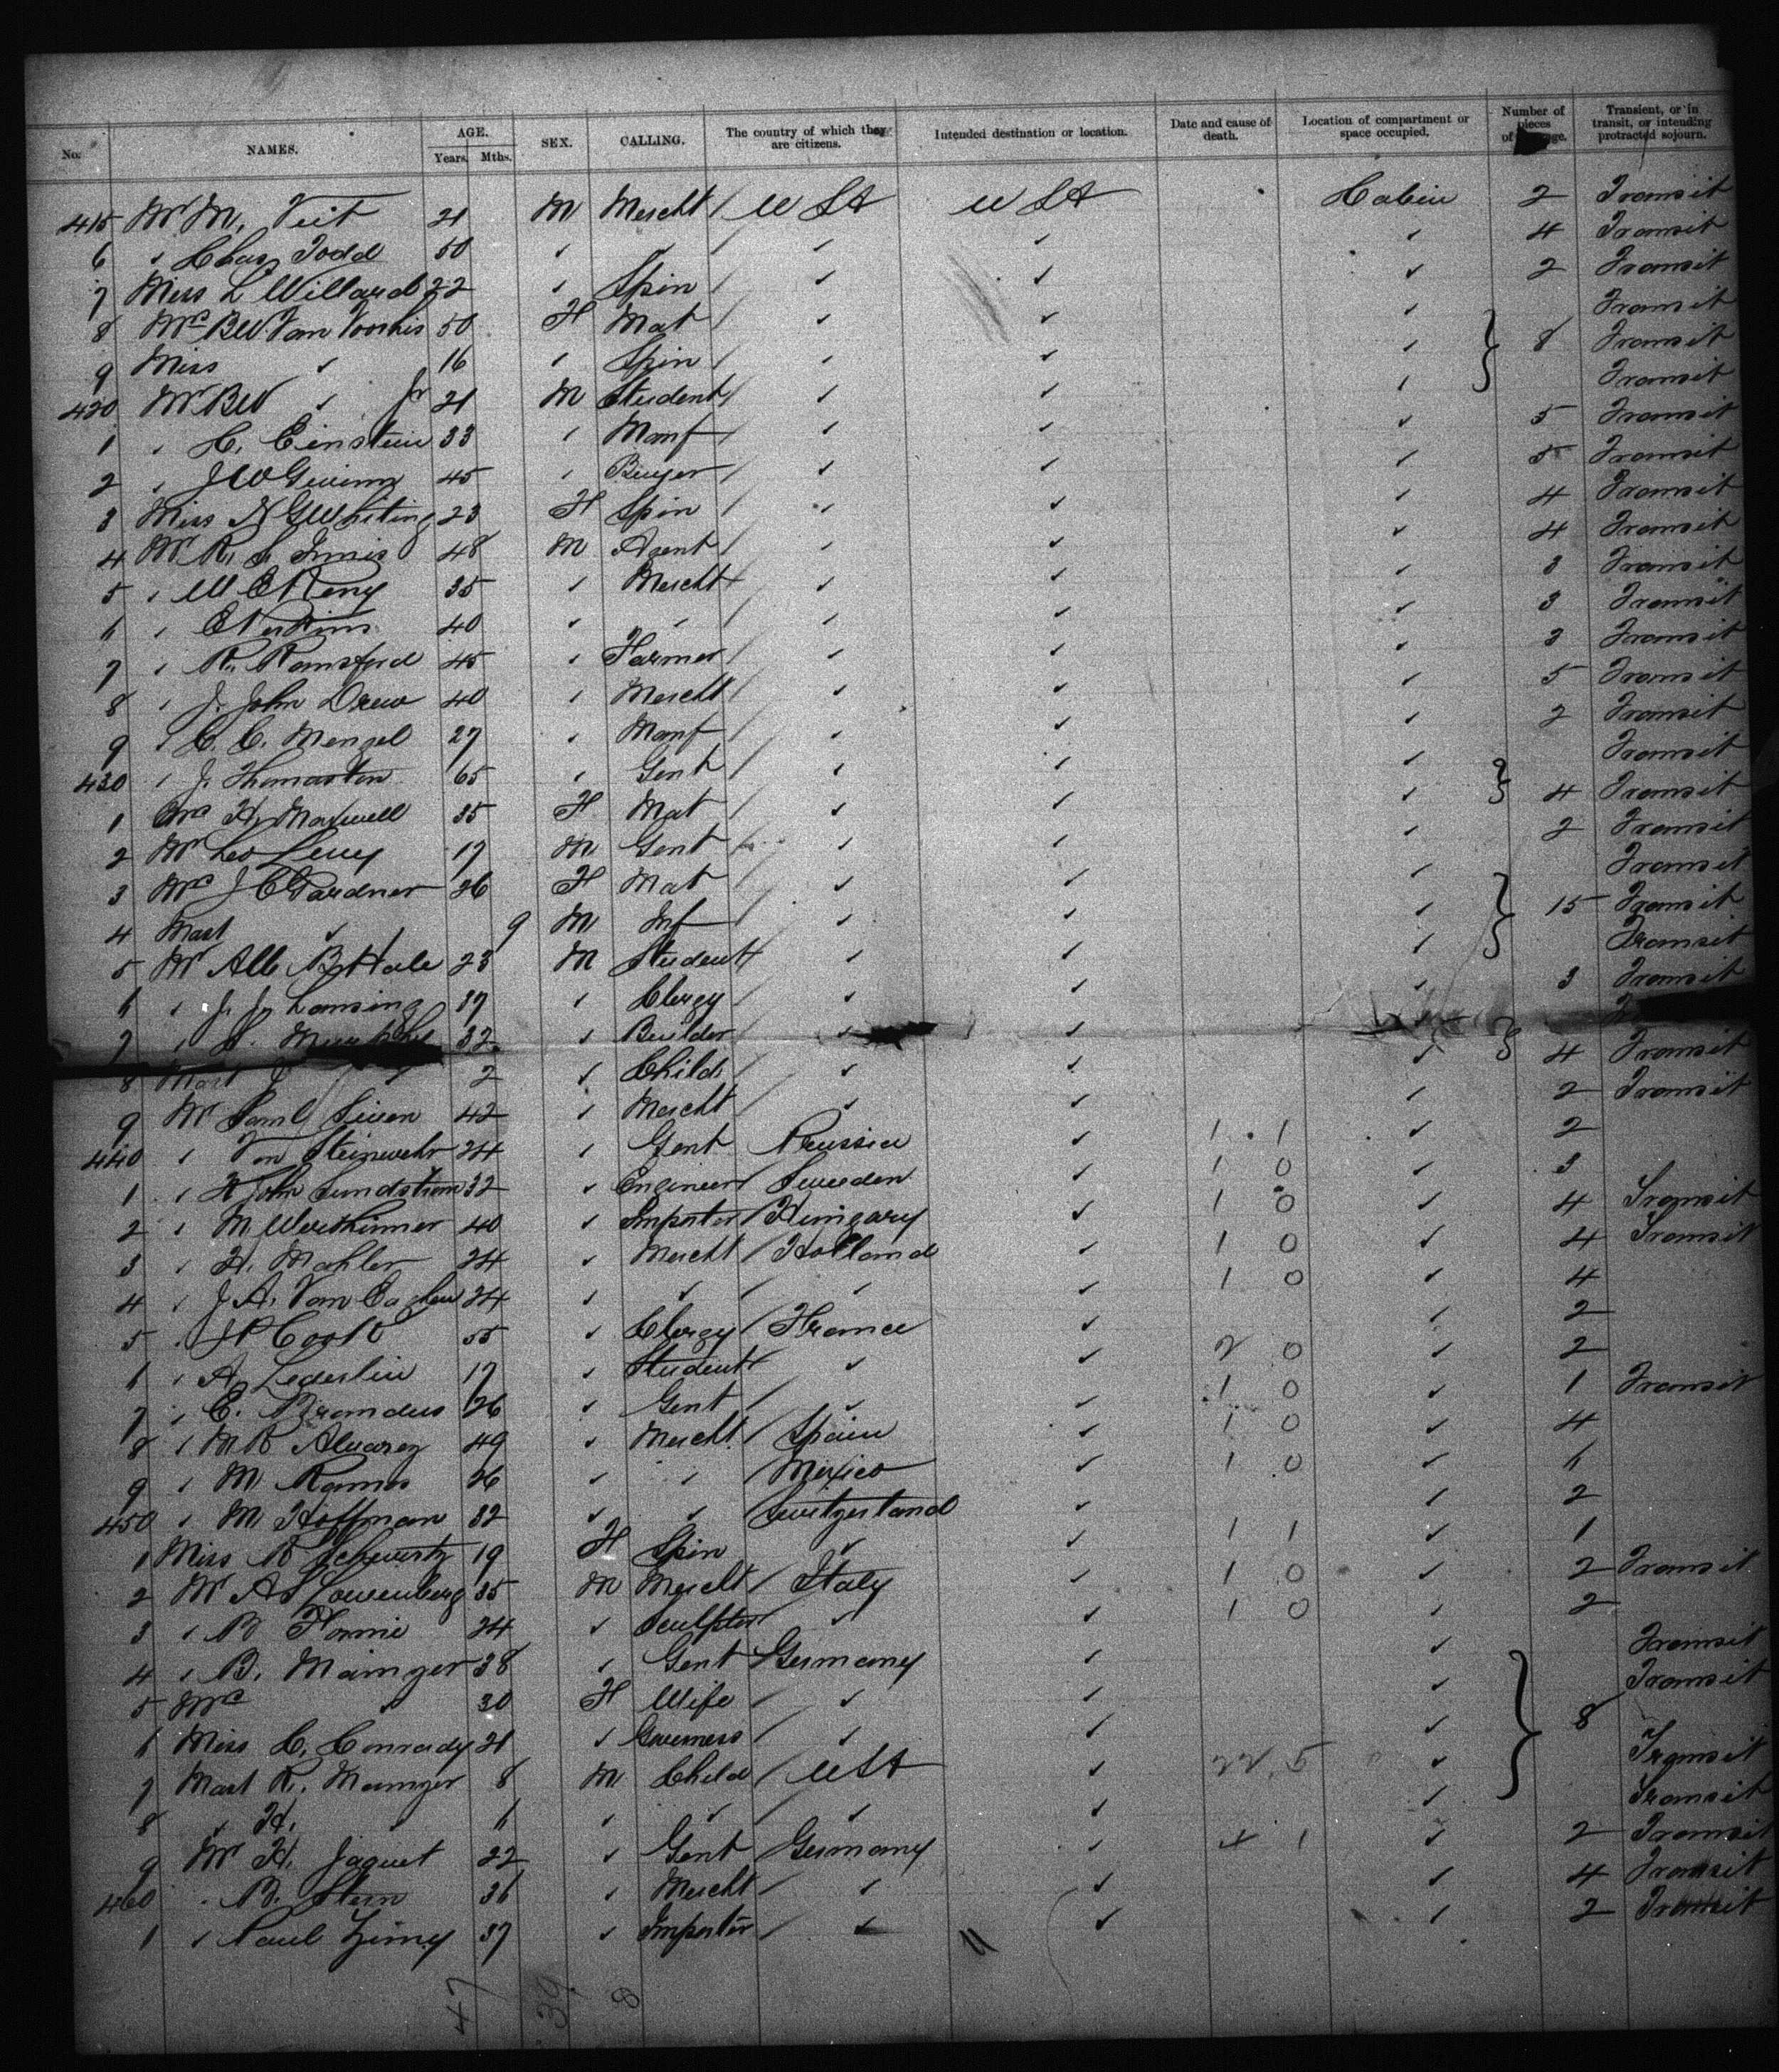 No. NAMES. AGE. Years. Mths. SEX. CALLING. The country of which they are citizens. Intended destination or location. Date and cause of death. Location of compartment or space occupied. Number of pieces of Transient, or in transit, or intending protracted sojourn.
415 Mr M. Veit 21 M Mercht / U St U St Cabin 2 Transit
6 " Chas Todd 50 " " / " " " 4 Transit
7 Miss L Willard 22 " Spin / " " " 2 Transit
8 Mrs BW Van Voorhis 50 F Mat / " " " Transit
9 Miss " 16 " Spin / " " " 8 Transit
420 Mr BW " Jr 21 M Student / " " " Transit
1 " C. Einstein 33 " Manf / " " " 5 Transit
2 " JW 45 " Buyer / " " " 5 Transit
3 Miss N G Whiting 23 F Spin / " " " 4 Transit
4 Mr R. S. Innis 48 M Agent / " " " 4 Transit
5 " W E 35 " Mercht / " " " 3 Transit
6 " E Perkins 40 " " / " " " 3 Transit
7 " R. Ramsford 45 " Farmer / " " " 3 Transit
8 " J. John Drew 40 " Mercht / " " " 5 Transit
9 " C. C. Mengel 27 " Manf / " " " 2 Transit
430 " J. Thomaston 65 " Gent / " " " Transit
1 Mrs H. Maxwell 35 F Mat / " " " 4 Transit
2 Mr Leo Levy 19 M Gent / " " " 2 Transit
3 Mrs J C Gardner 26 F Mat / " " " Transit
4 Mast " 9 M Inf / " " " 15 Transit
5 Mr Alb B Hale 23 M Student / " " " Transit
6 " J. J. Lansing 37 " Clergy / " " " 3 Transit
7 " Murphy 32 " Builder / " " "
8 Mast J " 2 " Child / " " " 4 Transit
9 Mr Saml 42 " Mercht / " " " 2 Transit
440 " Von Steinwehr 24 " Gent Prussia " 1 1 " 2
1 " John Lundstrom 32 " Engineer / Sweden " 1 0 " 3
2 " M Wertheimer 40 " Importer / Hungary " 1 0 " 4 Transit
3 " H. Mahler 24 " Mercht / Holland " 1 0 " 4 Transit
4 " J. A. Van 24 " " / " " 1 0 " 4
5 " 55 " Clergy / France " " 2
6 " A. Lederlin 17 " Student / " " 2 0 " 2
7 " E. Brandus 26 " Gent / " " 1 0 " 1 Transit
8 " M R Alvarez 49 " Mercht / Spain " 1 0 " 4
9 " M Ramos 26 " " / Mexico " 1 0 " 6
450 " M Hoffman 32 " " / Switzerland " " 2
1 Miss R Schwartz 19 F Spin " " 1 1 " 1
2 Mr A S Lowenberg 35 M Mercht / Italy " 1 0 " 2 Transit
3 " 24 " Sculptor " " 1 0 " 2
4 " B. Mainzer 38 " Gent Germany " " Transit
5 Mrs " 30 F Wife / " " " Transit
6 Miss C. Conrady 21 " Governess / " " " 8
7 Mast R. Mainzer 8 M Child / U St " 22 5 " Transit
8 " H. " 6 " " / " " " Transit
9 Mr H. Jaquet 22 " Gent Germany " 4 1 " 2 Transit
460 " B. Stern 36 " Mercht / " " " 4 Transit
1 " Paul 37 " Importer / " " " 2 Transit
47 39 8 11